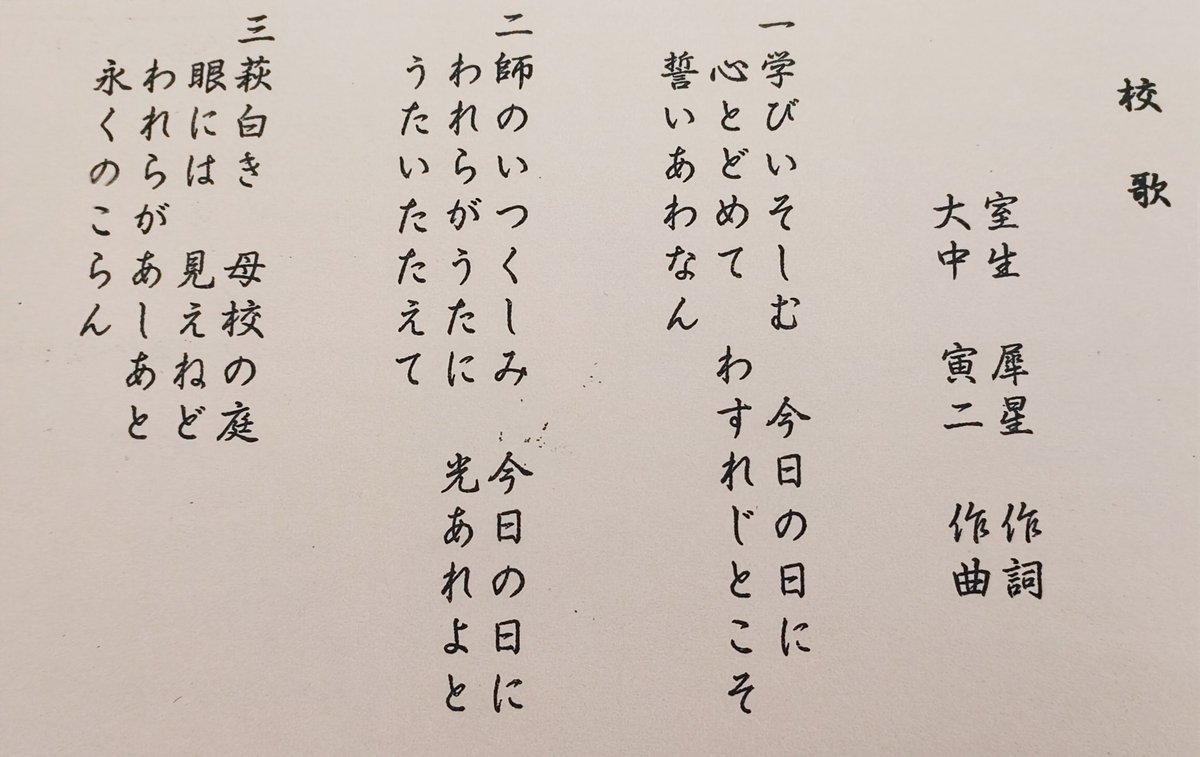 校　歌
室生　犀星　作詞
大中　寅二　作曲
一 学びいそしむ　今日の日に
心とどめて　わすれじとこそ
誓いあわなん
二 師のいつくしみ　今日の日に
われらがうたに　光あれよと
うたいたたえて
三 萩白き　母校の庭
眼には　見えねど
われらがあしあと
永くのこらん